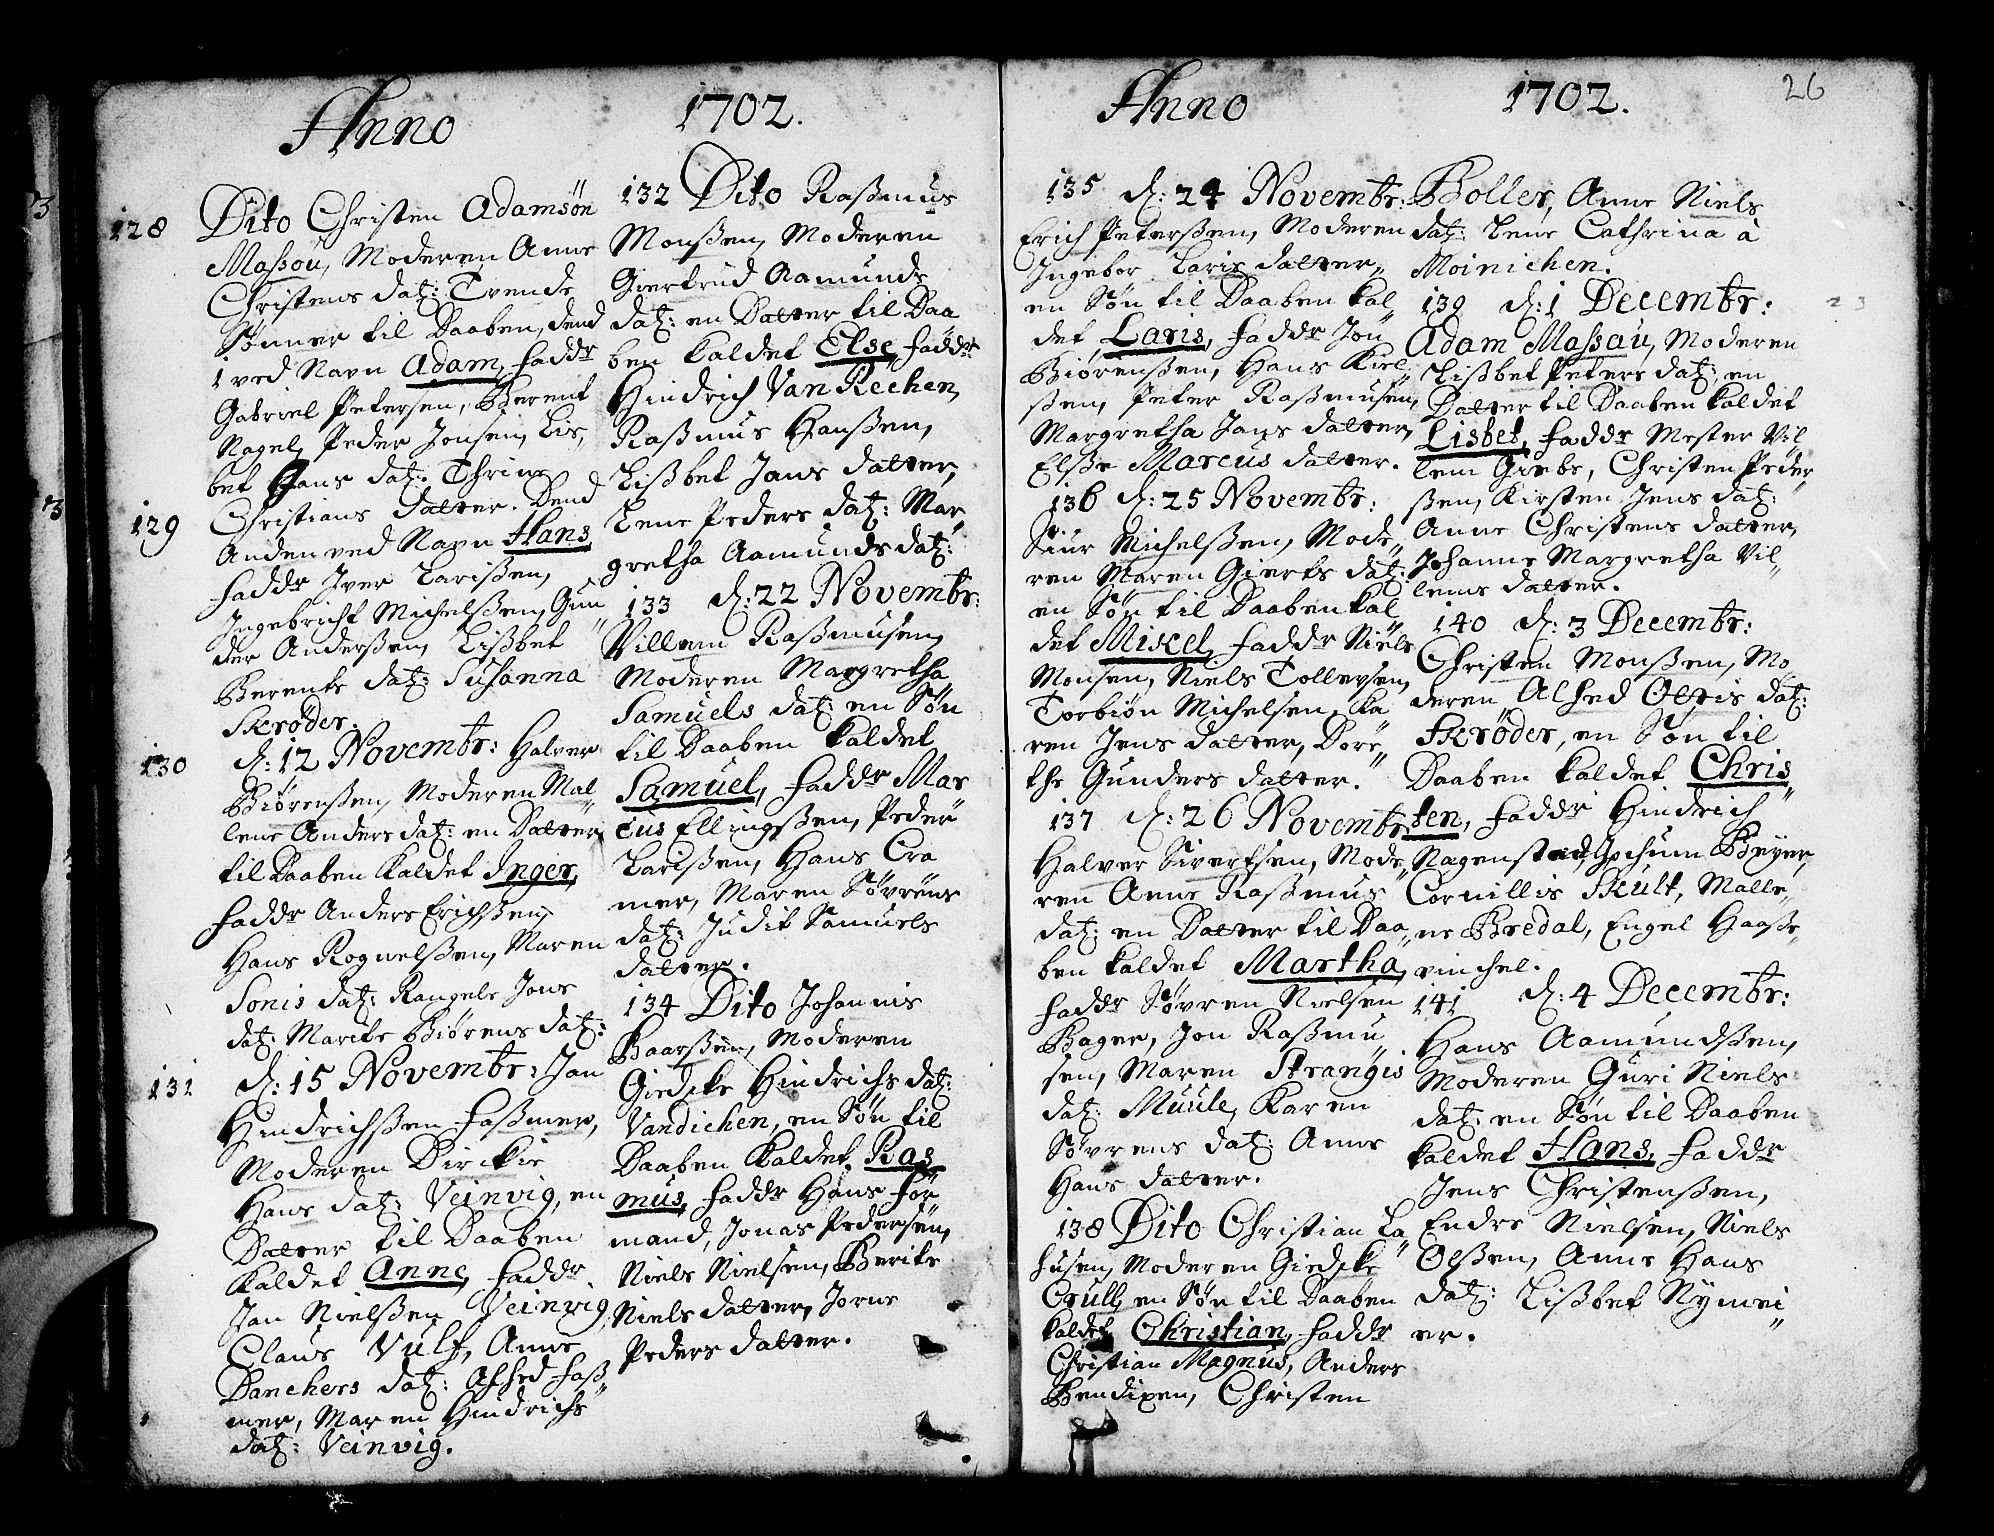 Anno 1702.
128 Dito Christen Adamsøn
Massou, Moderen Anne
Christens dat: Trende
Sønner til Daaben, dend
1 ved Navn Adam, faddr
Gabriel Petersen, Berent
Nagel, Peder Jonsen, Lis„
bet Hans dat: Thrine
Christians datter. Dend
129 Anden ved Navn Hans,
faddr Iver Larissen,
Ingebricht Michelssen, Gun„
der Anderssen, Lissbet
Berents dat: Susanna
Skrøder.
130 d: 12 Novembr: Halver
Biörenssen, Moderen Mal„
lene Anders dat: en Datter
til Daaben kaldet Inger,
faddr Anders Erichssen,
Hans Rognelssen, Maren
Sonis dat: Rangele Jons
dat: Marite Biörens dat:
131 d: 15 Novembr: Jan
Hindrichssen Fassmer,
Moderen Dirckie
Hans dat: Veinvig, en
Datter til Daaben
kaldet Anne, faddr
Jan Nielssen Veinvig,
Claus Vulf, Anne
Danchers dat: Alhed Fass„
mer, Maren Hindrichs
dat: Veinvig.
132 Dito Rassmus
Monssen, Moderen
Giertrud Aamunds
dat: en Datter til Daa
ben kaldet Else, faddr
Hindrich Van Rechen,
Rassmus Hanssen,
Lissbet Jans datter,
Lene Peders dat: Mar„
gretha Aamunds dat:
133 d: 22 Novembr:
Villem Rassmusen,
Moderen Margretha
Samuels dat: en Søn
til Daaben kaldet
Samuel, faddr Mar„
cus Ellingssen, Peder
Larissen, Hans Cra„
mer, Maren Søvrens
dat: Judit Samuels
datter.
134 Dito Johannis
Baarssen, Moderen
Giedcke Hindrichs dat:
Vandichen, en Søn til
Daaben kaldet Ras„
mus, faddr Hans För„
mand, Jonas Pedersen,
Niels Nielsen, Berite
Niels datter, Jorne
Peders datter.
Anno 1702. 26
135 d: 24 Novembr:
Erich Peterssen, Moderen
Ingebor Laris datter„
en Søn til Daaben kal„
det Laris, faddr Jon
Biörenssen, Hans Kiel„
ssen, Peter Rassmusen,
Margretha Jans datter,
Elsse Marcus datter.
136 d: 25 Novembr:
Siur Michelssen, Mode„
ren Maren Gierts dat:
en Søn til Daaben kal„
det Mickel, faddr Niels
Monsen, Niels Tollevsen,
Torbiön Michelsen, Ka
ren Jens datter, Dore„
the Gunders datter.
137 d: 26 Novembr:
Halver Sivertsen, Mode„
ren Anne Rassmus
dat: en Datter til Daa„
ben kaldet Martha,
faddr Søvren Nielsen
Bager, Jon Rassmu„
sen, Maren Strangis
dat: Muule, Karen
Søvrens dat: Anne
Hans datter.
138 Dito Christian La„
husen, Moderen Giedcke
Crull, en Søn til Daaben
kaldet Christian, faddr
Christian Magnus, Anders
Bendixen, Christen
Boller, Anne Niels
dat: Lene Cathrina à
Moinichen.
139 d: 1 Decembr:
Adam Massau, Moderen
Lissbet Peters dat: en
Datter til Daaben kaldet
Lisbet, faddr Mester Vil„
lem Giebe, Christen Peder„
ssen, Kirsten Jens dat:
Anne Christens datter,
Johanne Margretha Vil„
lems datter.
140 d: 3 Decembr:
Christen Monssen, Mo„
deren Alhed Olvis dat:
Skrøder, en Søn til
Daaben kaldet Chris„
ten, faddr Hindrich
Nagenstad, Jochum Beyer,
Cornillis Skult, Malle„
ne Bredal, Engel Haasse„
vinchel.
141 d: 4 Decembr:
Hans Aamundssen,
Moderen Guri Niels
dat: en Søn til Daaben
kaldet Hans, faddr
Jens Christenssen,
Endre Nielsen, Niels
Olssen, Anne Hans
dat: Lissbet Nymei„
er.